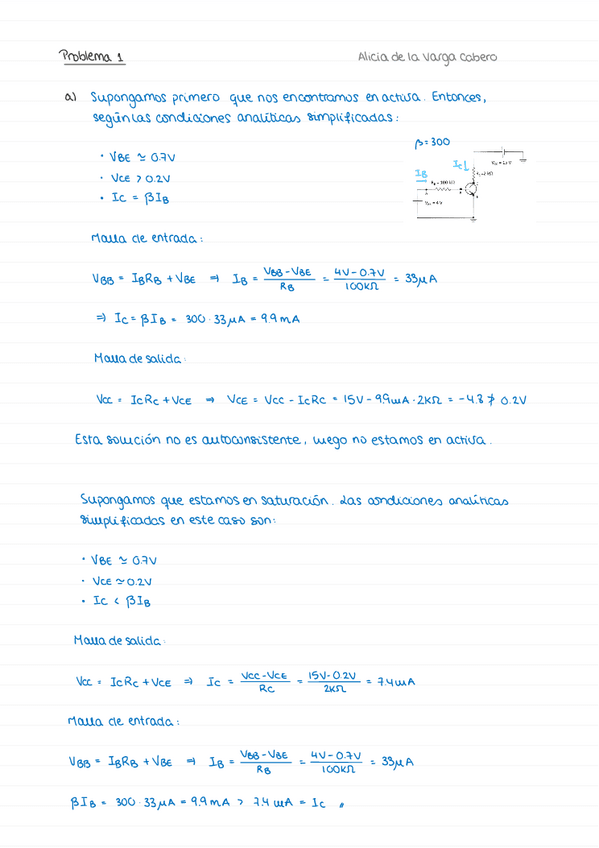 Problema 1
Alicia de la Varga Cabero
a) Supongamos primero que nos encontramos en activa. Entonces,
según las condiciones analíticas simplificadas:
· VBE ≃ 0.7V
· VCE > 0.2V
· IC = βIB
β = 300
IC↓
IB
Malla de entrada:
VBB = IBRB + VBE ⇒ IB = (VBB - VBE)/RB = (4V - 0.7V)/100KΩ = 33μA
⇒ IC = βIB = 300 · 33μA = 9.9mA
Malla de salida:
VCC = ICRC + VCE ⇒ VCE = VCC - ICRC = 15V - 9.9mA · 2KΩ = -4.8 ≯ 0.2V
Esta solución no es autoconsistente, luego no estamos en activa.
Supongamos que estamos en saturación. Las condiciones analíticas
simplificadas en este caso son:
· VBE ≃ 0.7V
· VCE ≃ 0.2V
· IC < βIB
Malla de salida:
VCC = ICRC + VCE ⇒ IC = (VCC - VCE)/RC = (15V - 0.2V)/2KΩ = 7.4mA
Malla de entrada:
VBB = IBRB + VBE ⇒ IB = (VBB - VBE)/RB = (4V - 0.7V)/100KΩ = 33μA
βIB = 300 · 33μA = 9.9mA > 7.4mA = IC